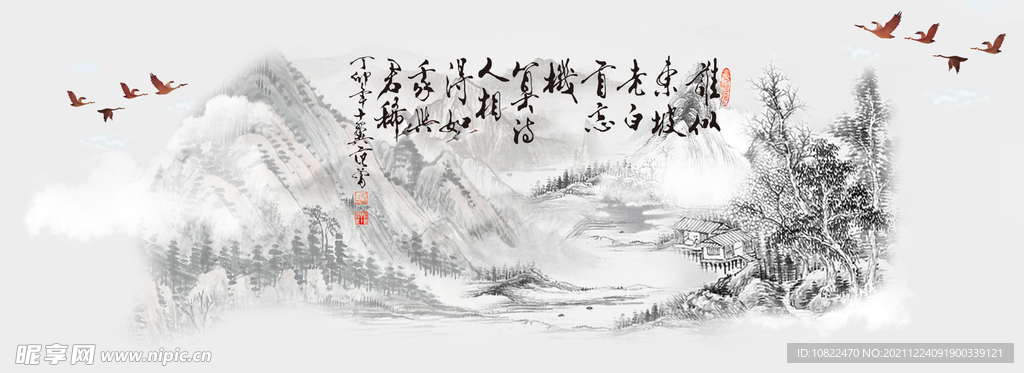 誰似
東坡
老白
首忘
機
算詩
人相
得如
我與
君稀
丁卯年十翼范曾
昵享网 www.nipic.cn
ID:10822470 NO:20211224091900339121